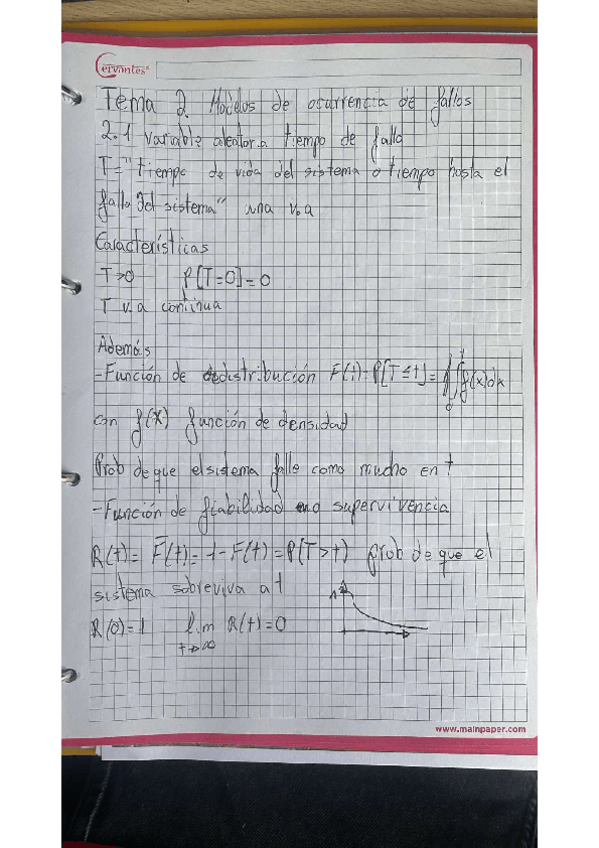 Cervantes
Tema 2. Modelos de ocurrencia de fallos
2.1 Variable aleatoria tiempo de fallo
T="tiempo de vida del sistema o tiempo hasta el
fallo del sistema" una v.a
Características
T>0 P[T=0]=0
T v.a continua
Además
-Función de distribución F(t)=P[T≤t]=∫₀ᵗf(x)dx
con f(x) función de densidad
Prob de que el sistema falle como mucho en t
-Función de fiabilidad o supervivencia
R(t)=F̄(t)=1-F(t)=P(T>t) Prob de que el
sistema sobreviva a t
1
R(0)=1 lim R(t)=0
t→∞
www.mainpaper.com